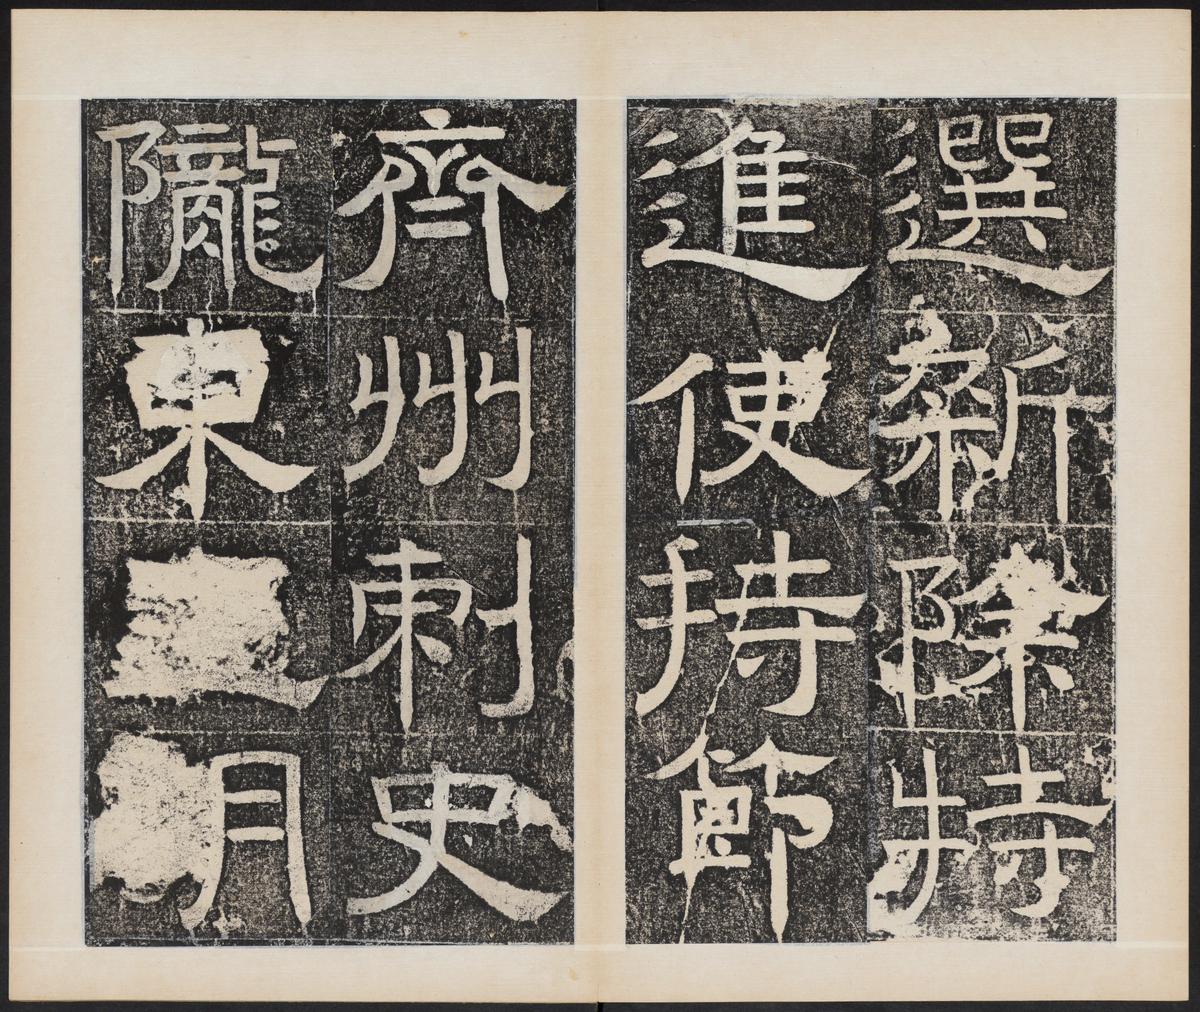 選新除特
進使持節
齊州刺史
隴東